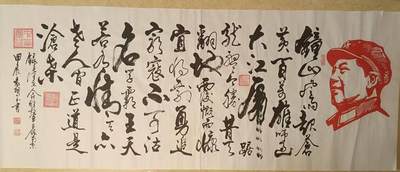 鐘山風雨起蒼
黃百萬雄師過
大江虎踞
龍盤今勝昔天
翻地覆慨而慷
宜將剩勇追
窮寇不可沽
名学霸王天
若有情天亦
老人間正道是
滄桑
甲辰